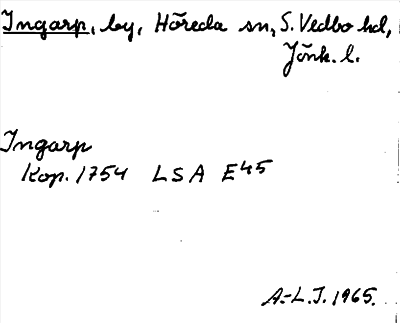 Ingarp, by, Höreda sn, S. Vedbo hd,
Jönk. l.
Ingarp
Kop. 1754 LSA E45
A.-L.J. 1965.